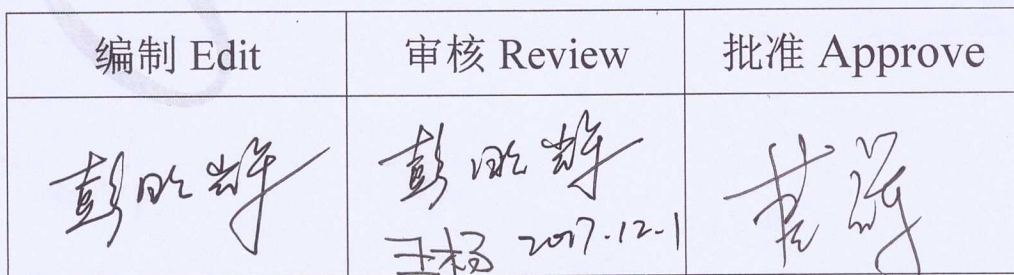 编制 Edit 审核 Review 批准 Approve
彭 辉 彭 辉
王杨 2017.12.1